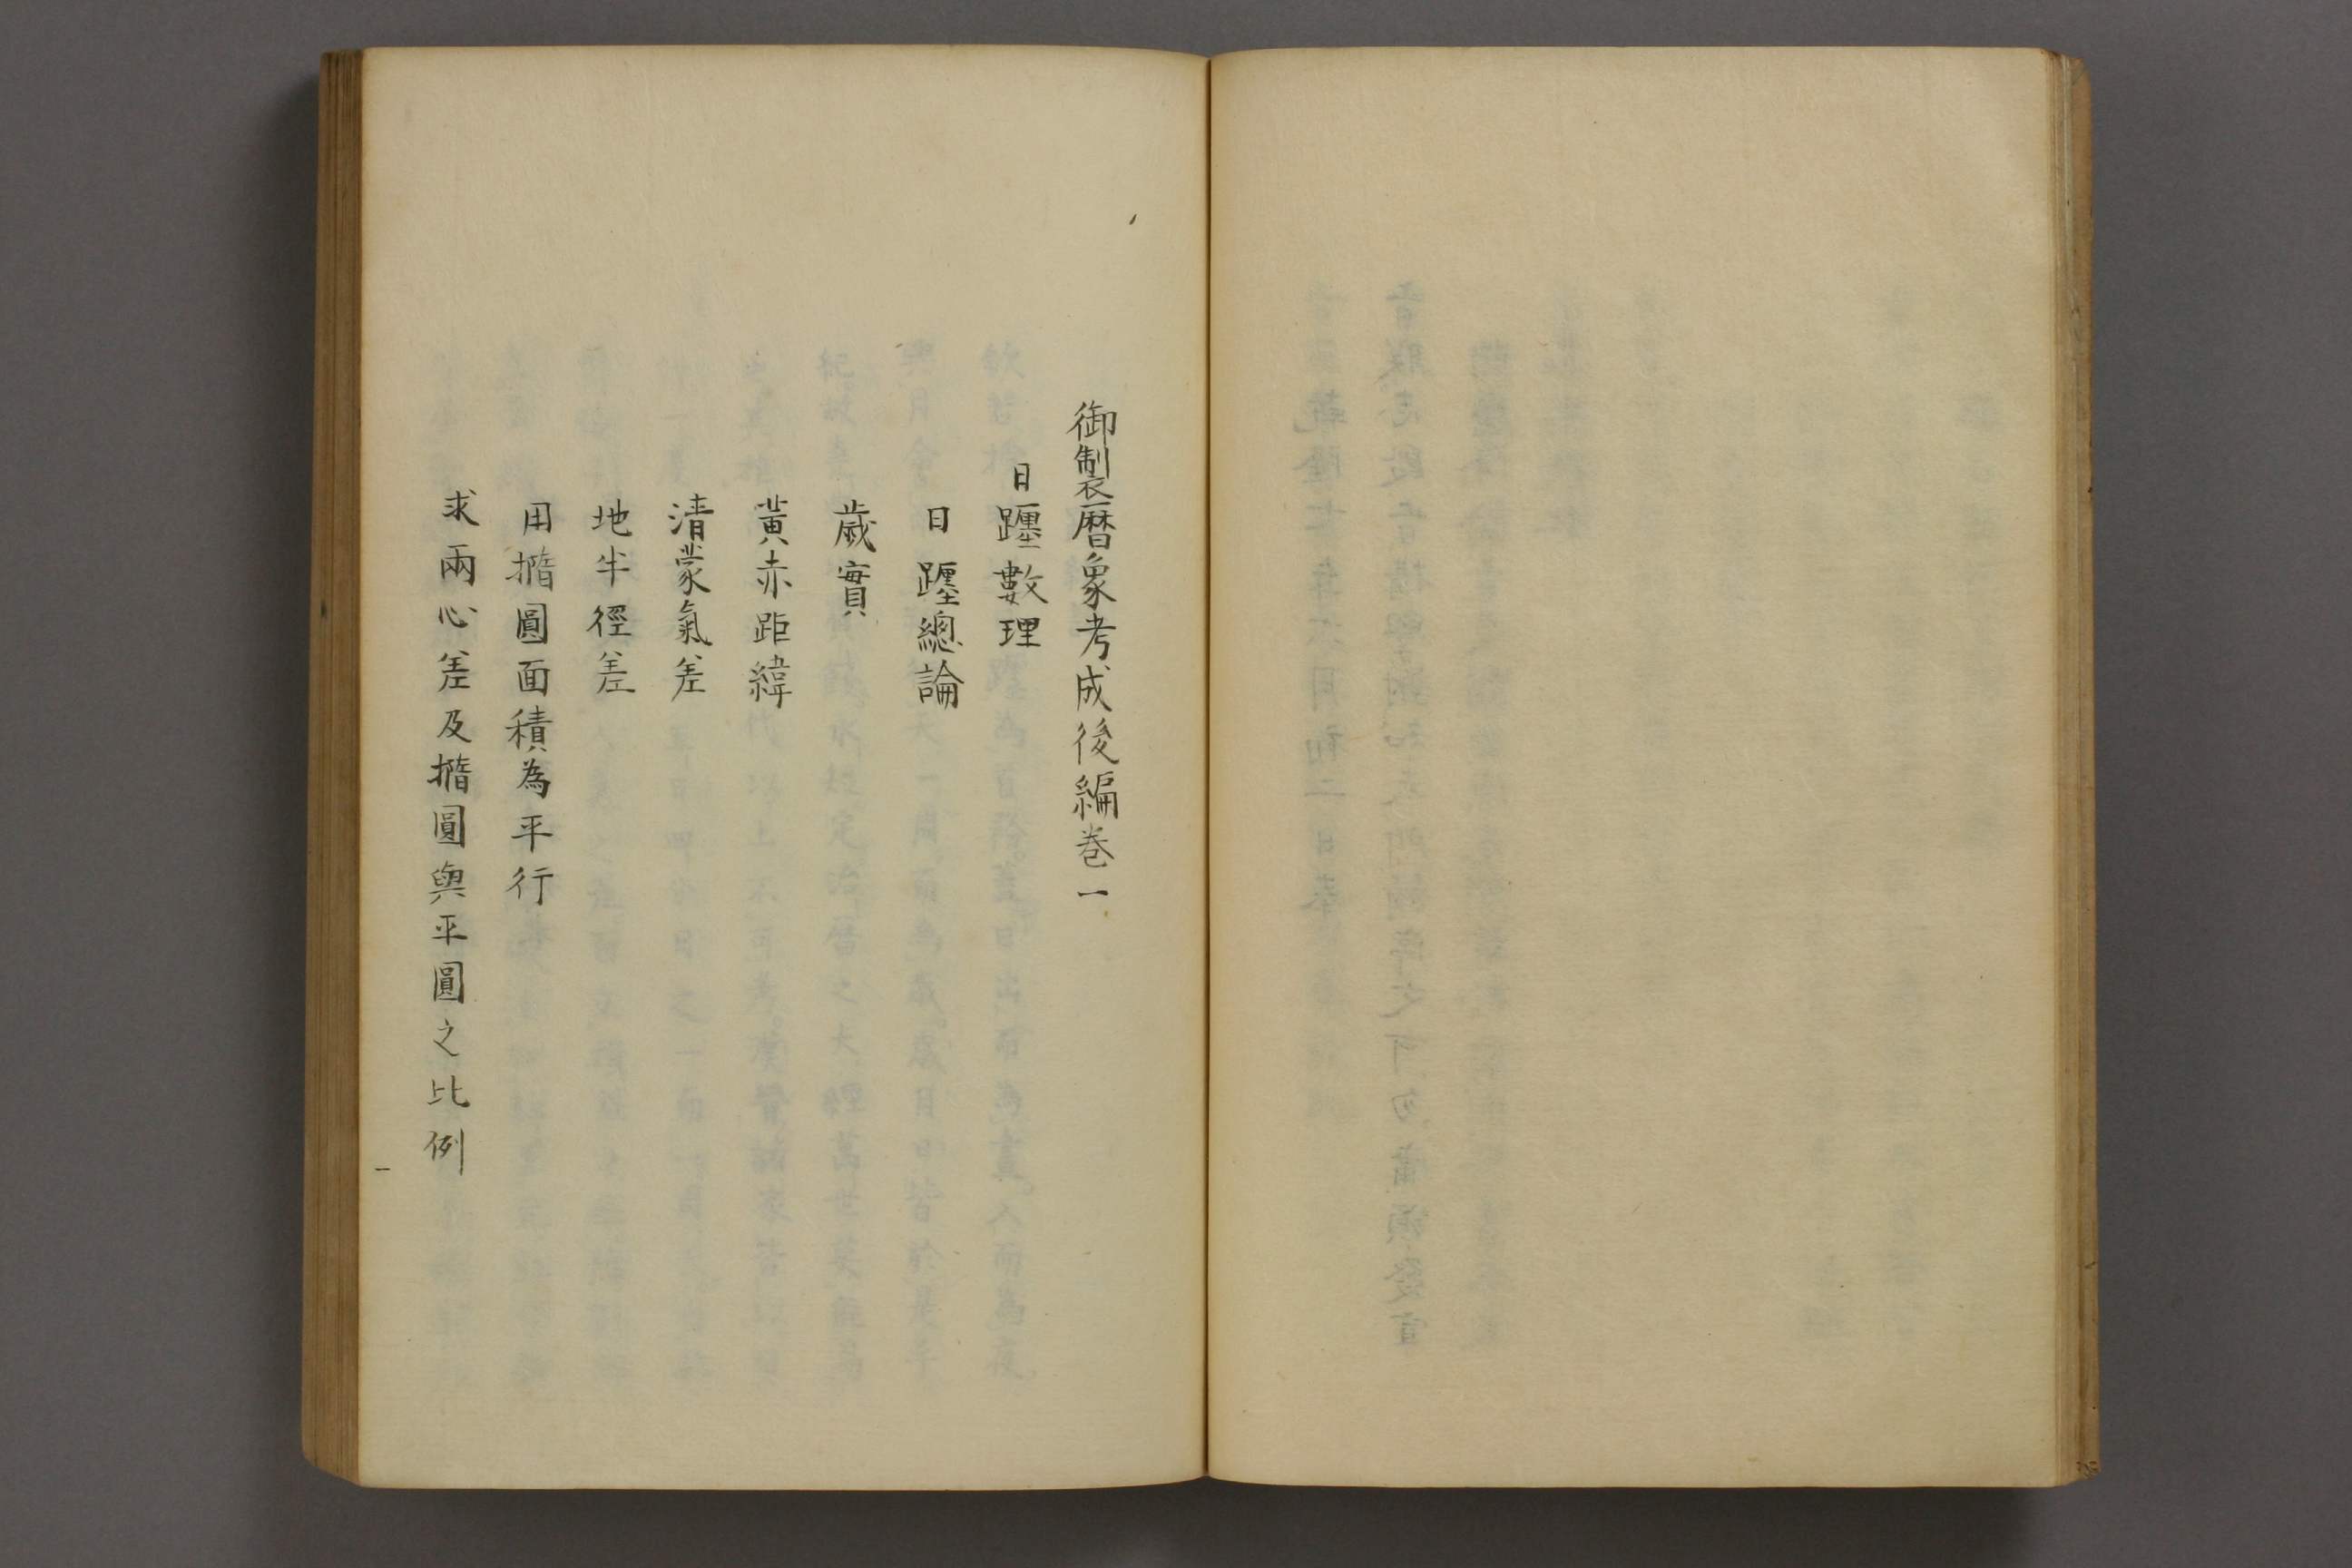 御製曆象考成後編卷一
日躔數理
日躔總論
歲實
黃赤距緯
清蒙氣差
地半徑差
用撱圓面積為平行
求兩心差及撱圓與平圓之比例
一